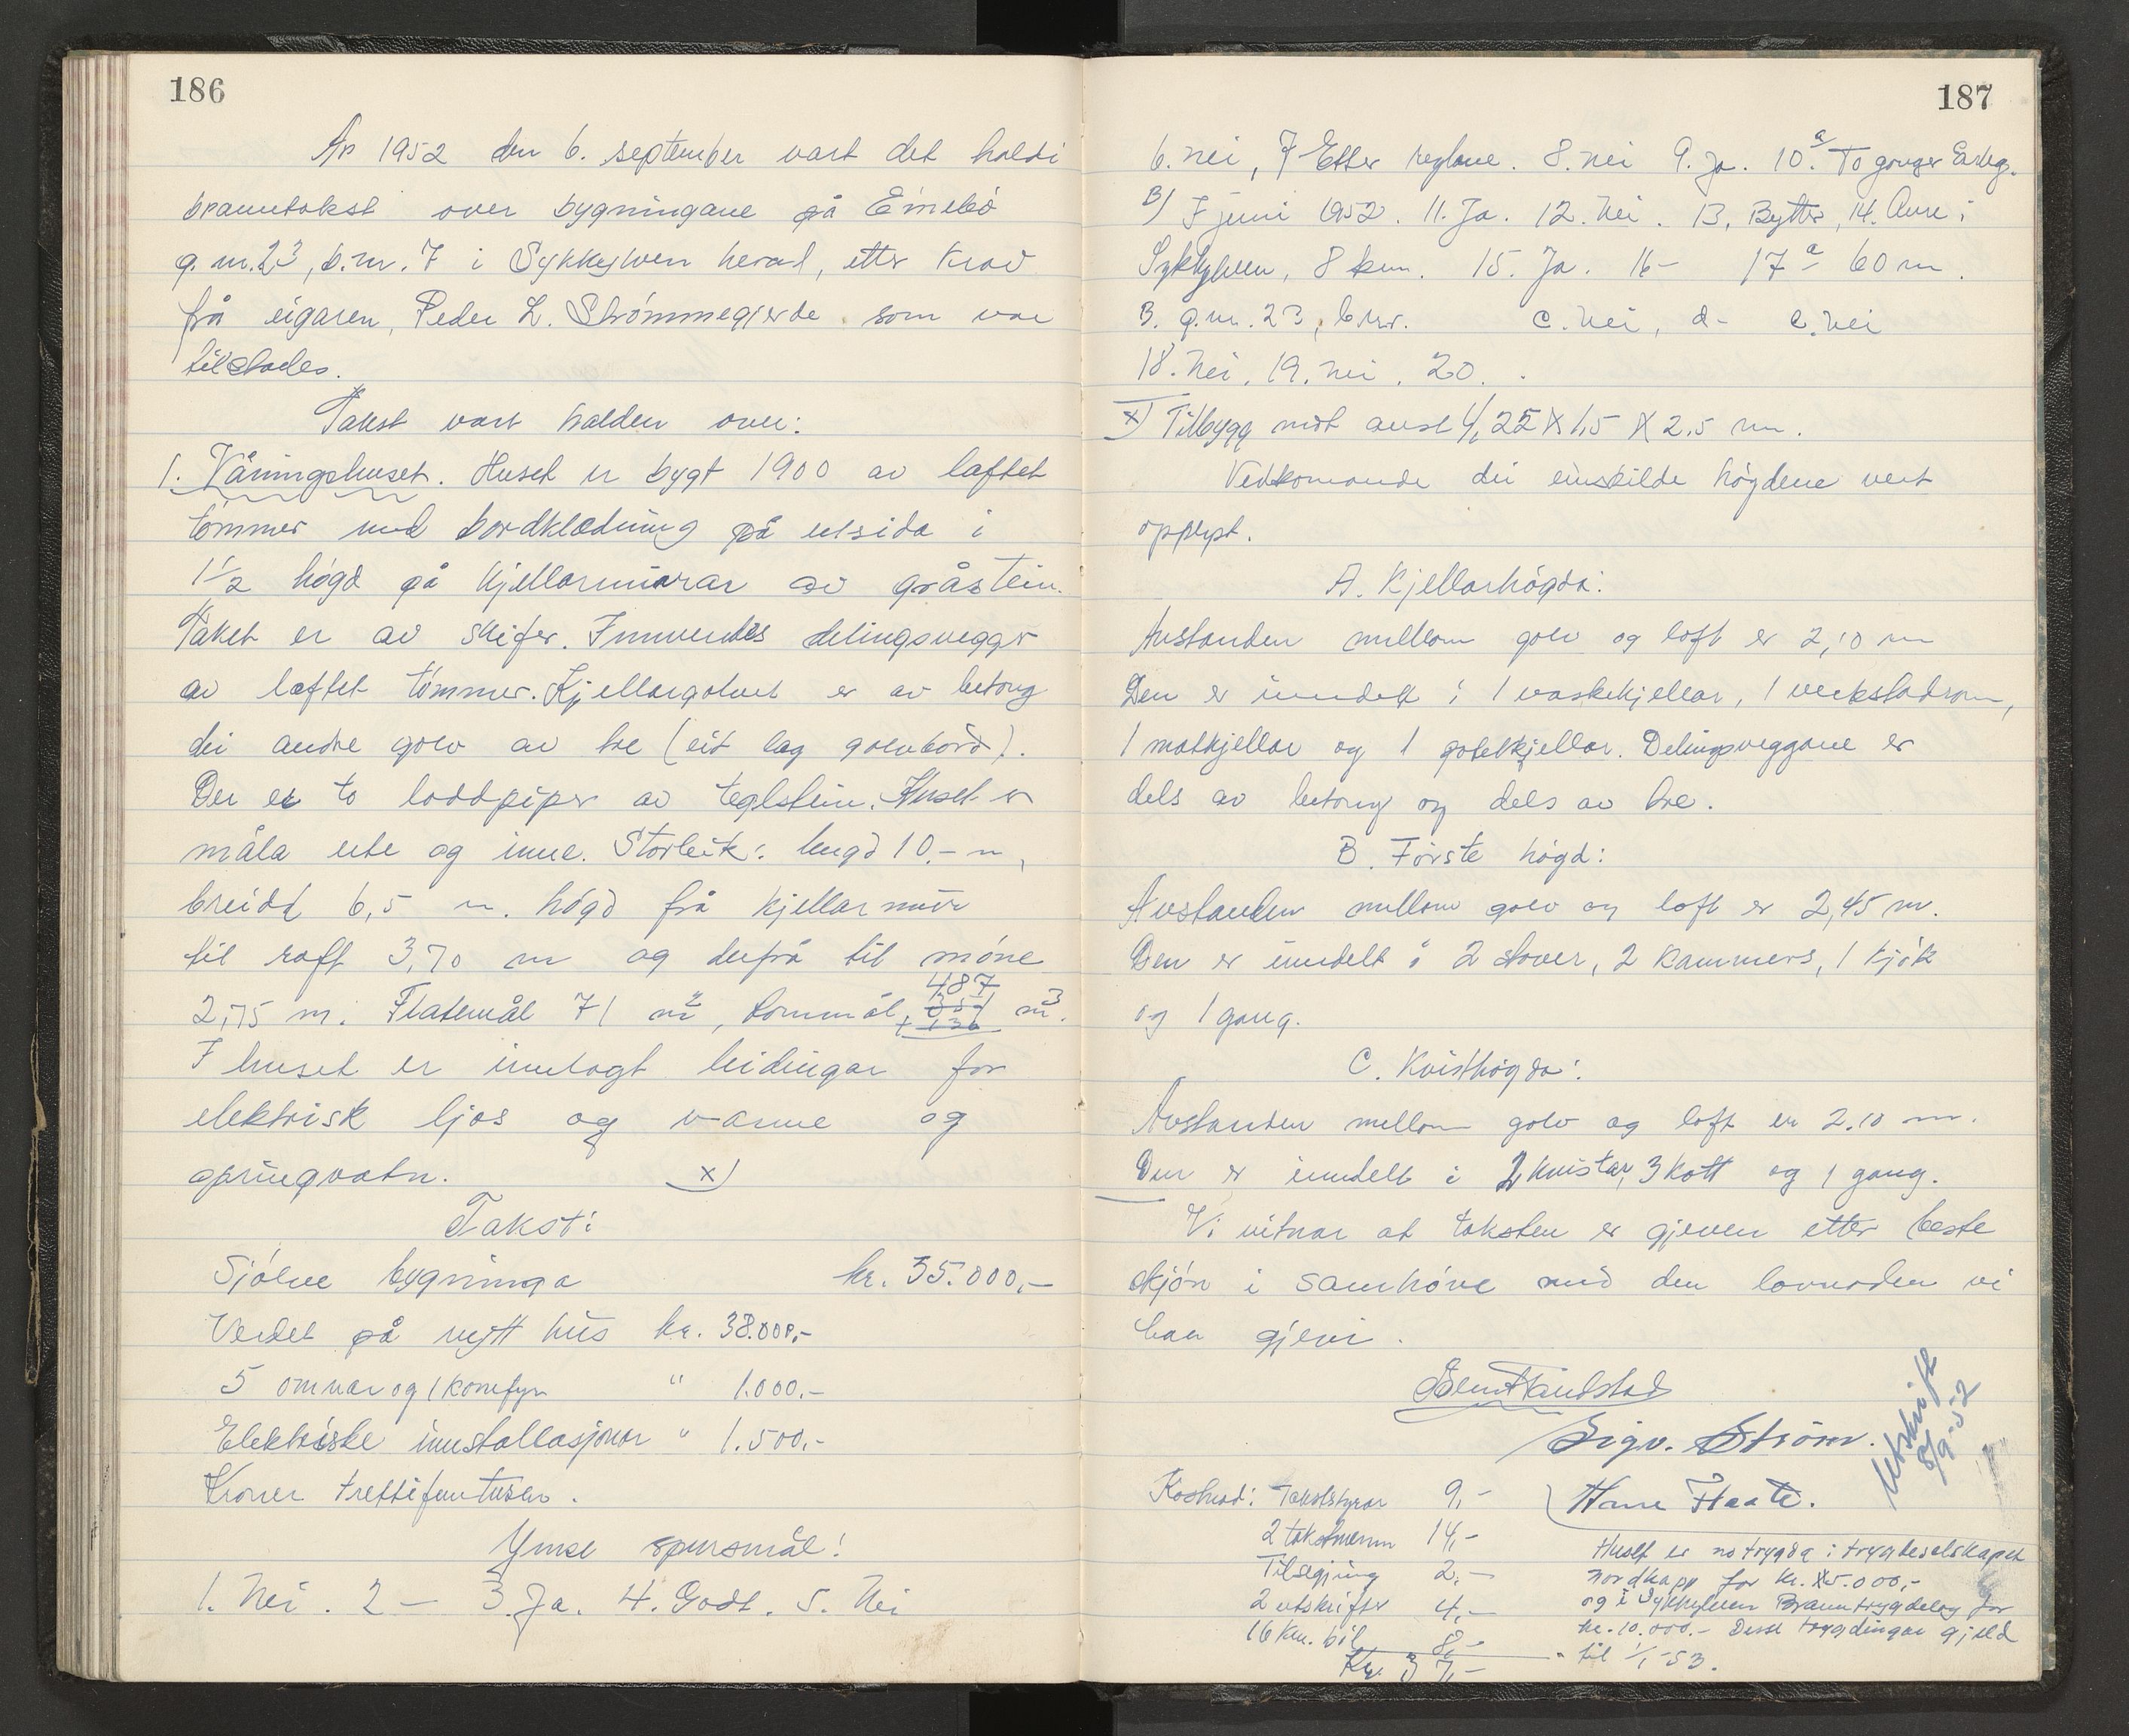 186
År 1952 den 6. september vart det haldi
branntakst over bygningane på Eimebø
g.nr.23, b.nr. 7 i Sykkylven herad, etter krav
frå eigaren, Peder L. Strømmegjerde som var
tilstades.
Takst vart halden over:
1. Våningshuset. Huset er bygt 1900 av laftet
tømmer med bordklædning på utsida i
1 1/2 høgd på kjellarmurar av gråstein.
Taket er av skifer. Innvendes delingsvegger
av laftet tømmer. Kjellargolvet er av betong
dei andre golv av tre (eit lag golvbord).
Der er to loddpiper av teglstein. Huset er
måla ute og inne. Storleik: lengd 10.- m,
breidd 6,5 m. høgd frå kjellarmur
til raft 3,70 m og derfrå til møne
2,75 m. Flatemål 71 m², rommål, 487 m³.
351
+ 136
I huset er innlagt leidingar for
elektrisk ljos og varme og
springvatn. x)
Takst:
Sjølve bygninga kr. 35.000,-
Verdet på nytt hus kr. 38.000,-
5 omnar og 1 komfyr " 1.000.-
Elektriske installasjonar " 1.500,-
Kroner trettifemtusen.
Ymse spursmål!
1. Nei. 2 - 3. Ja. 4. Godt. 5. Nei
187
6. nei, 7 Etter reglane. 8. nei 9. Ja. 10. a To gonger årleg.
B) I juni 1952. 11. Ja. 12. Nei. 13. Bytte, 14. Aure i
Sykkylven, 8 km. 15. Ja. 16- 17 a- 60 m.
B. g.nr. 23, b.nr. c. Nei, d- e. Nei
18. Nei. 19. nei. 20.
x) Tilbygg mot aust 4,25 X 1,5 X 2,5 m.
Vedkomande dei einskilde høgdene vert
opplyst.
A. Kjellarhøgda:
Avstanden mellom golv og loft er 2,10 m
Den er inndelt i 1 vaskekjellar, 1 verkstadrom,
1 matkjellar og 1 potetkjellar. Delingsveggane er
dels av betong og dels av tre.
B. Første høgd:
Avstanden mellom golv og loft er 2,45 m.
Den er inndelt i 2 stover, 2 kammers, 1 kjøk
og 1 gang.
C. Kvisthøgda:
Avstanden mellom golv og loft er 2.10 m.
Den er inndelt i 2 kvistar, 3 kott og 1 gang.
Vi vitnar at taksten er gjeven etter beste
skjøn i samhøve med den lovnaden vi
har gjevi.
Bernt Tandstad
Sigv. Strøm.
Hans Flaate.
Utskrift
8/9-52
Kostnad: Takststyrar 9,-
2 takstmenn 14,-
Tilsegjing 2,-
2 utskrifter 4,-
16 km. bil 8,-
Kr. 37,-
Huset er no trygda i trygdeselskapet
Nordkapp for kr. 15.000,-
og i Sykkylven Branntrygdelag for
kr. 10.000.- Desse trygdingar gjeld
til 1/1-53.